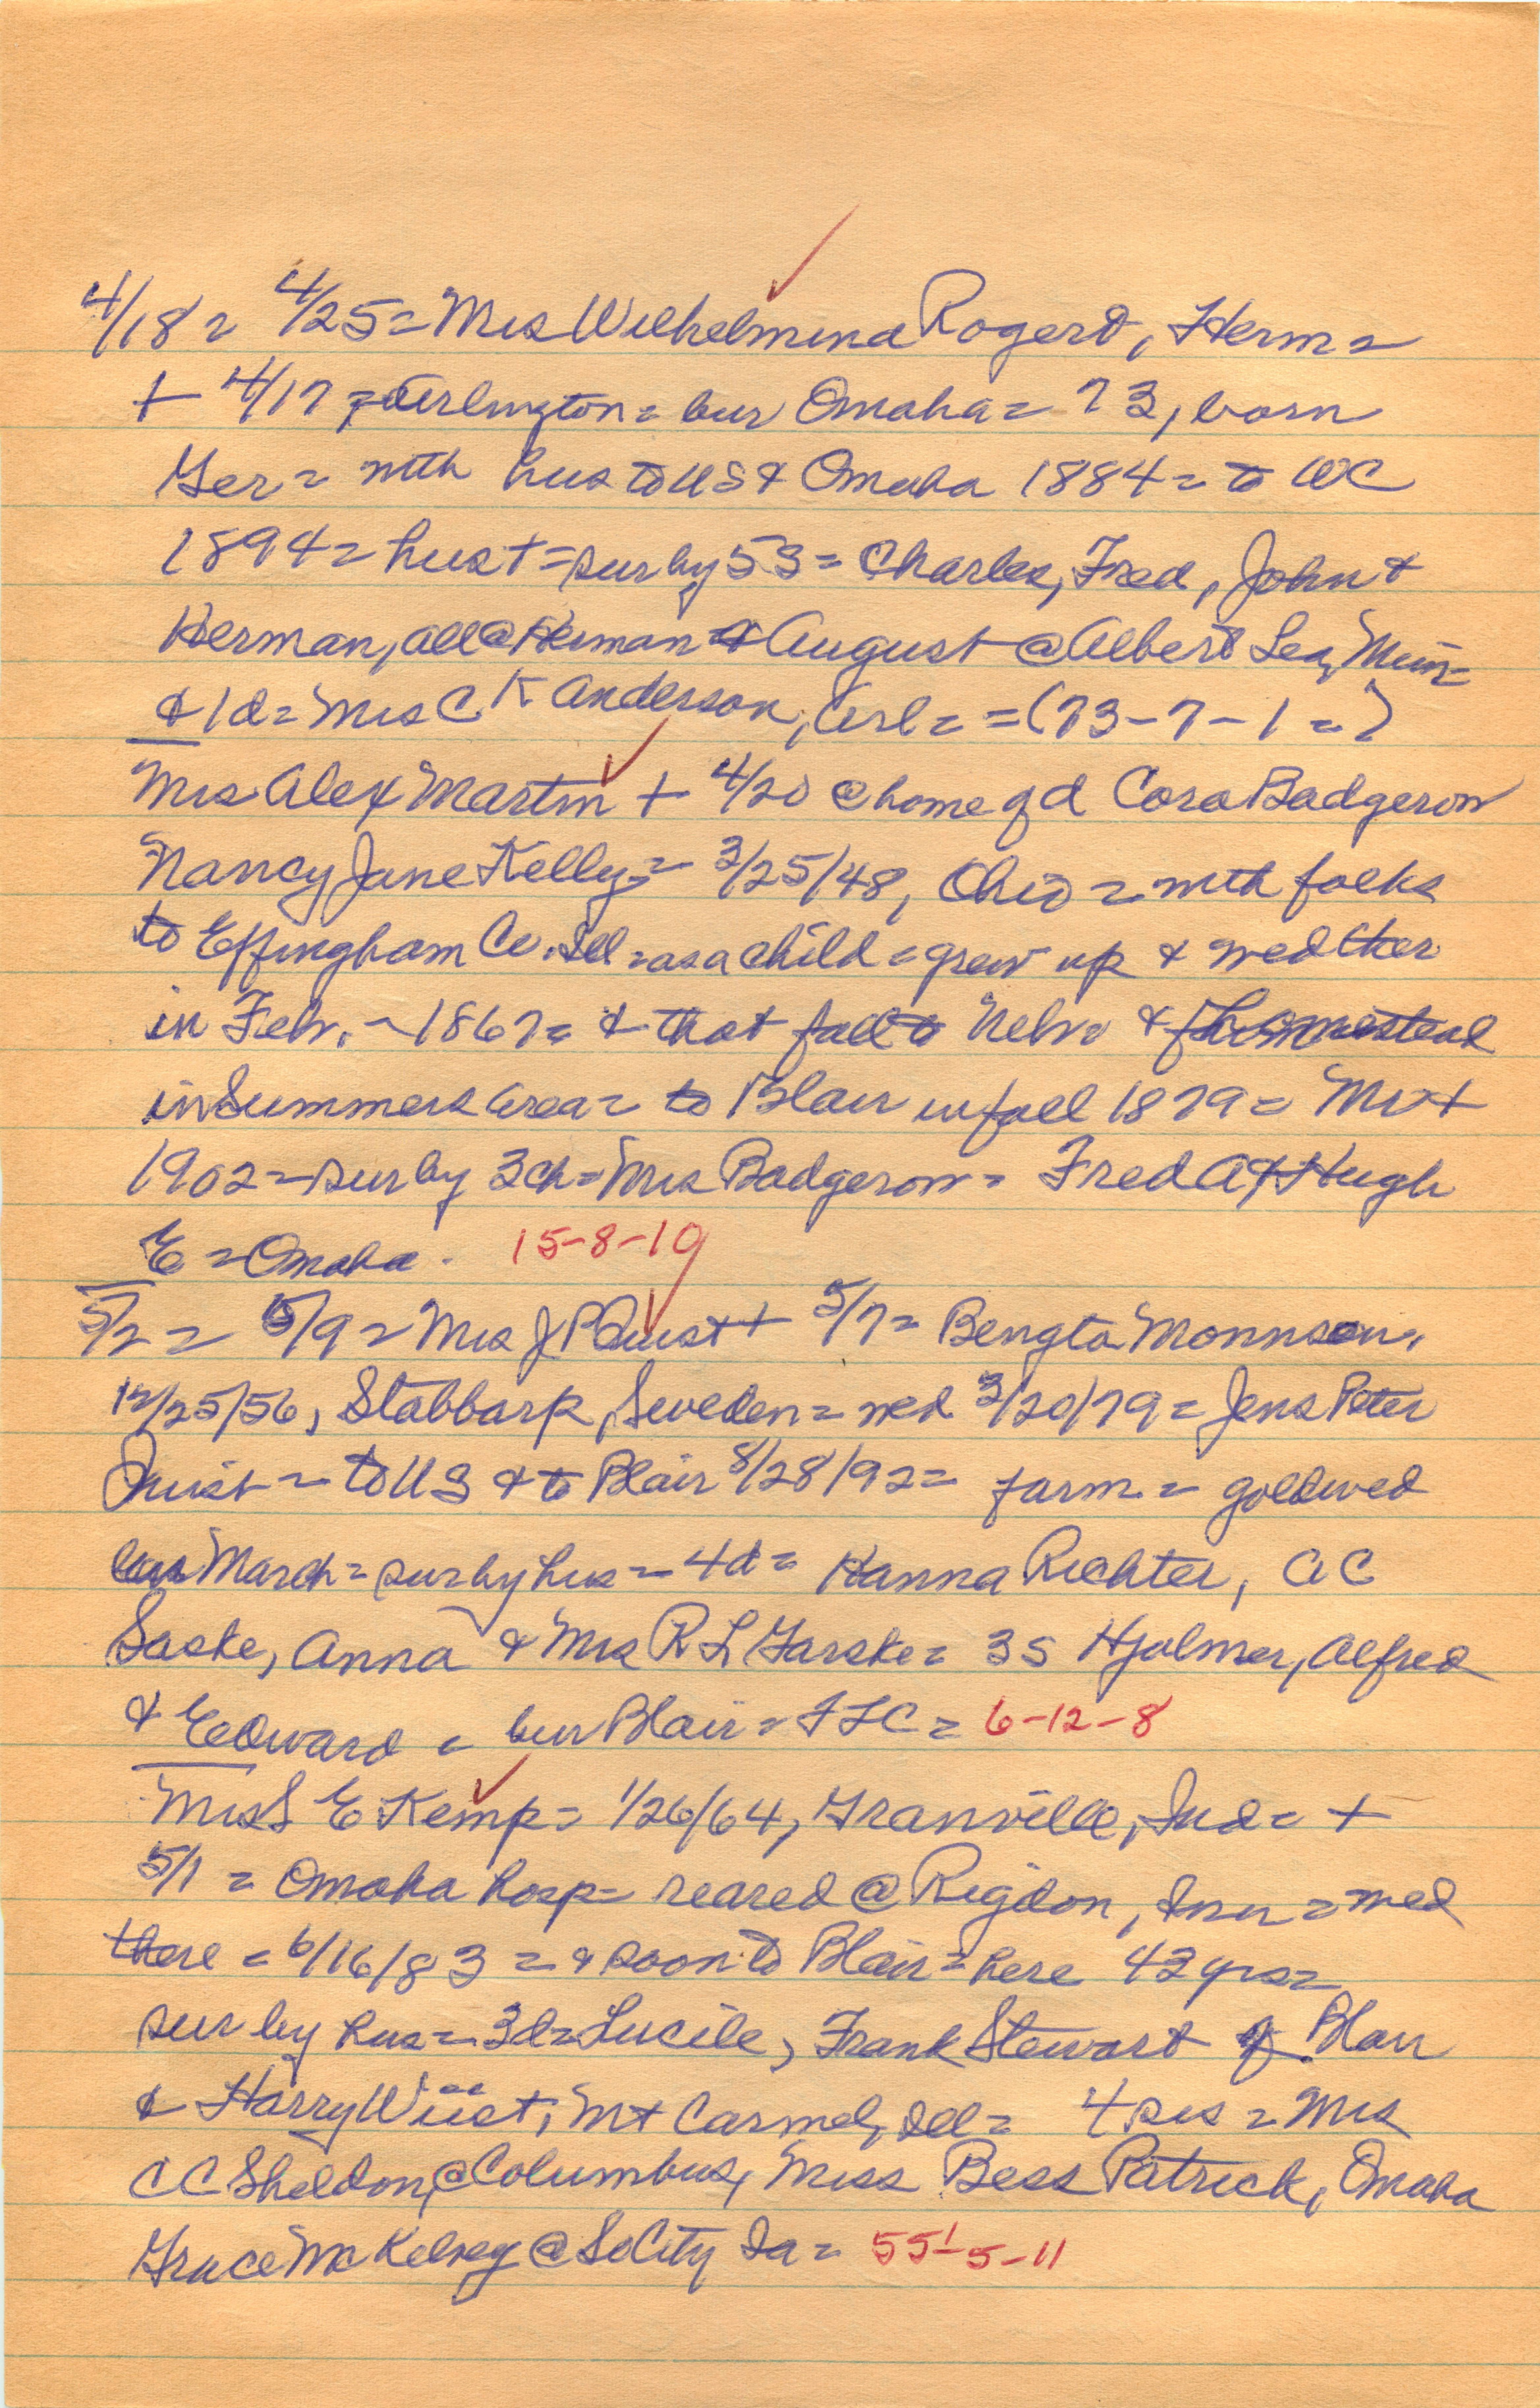 4/18 = 4/25 = Mrs Wilhelmina Rogert, Herm =
+ 4/17 = Arlington = bur Omaha = 73, born
Ger = with hus to US & Omaha 1884 = to WC
1894 = hus + = sur by 5 S = Charles, Fred, John &
Herman, all @ Herman & August @ Albert Lea, Minn =
& 1d = Mrs C K Anderson, Arl = = (73-7-1 = )
Mrs Alex Martin + 4/20 @ home of d Cora Badgerow
Nancy Jane Kelly = 3/25/48, Ohio = with folks
to Effingham Co. Ill = as a child = grew up & wed ther
in Feb. - 1867 = & that fall to Nebr = & homestead
in Summers area = to Blair in fall 1879 = Mr +
1902 = sur by 3 ch = Mrs Badgerow = Fred A & Hugh
E = Omaha. 15-8-10
5/2 = 5/9 = Mrs J P Quist + 5/7 = Bengta Monnson,
12/25/56, Stabbarp, Sweden = wed 3/20/79 = Jens Peter
Quist = to US & to Blair 8/28/92 = farm = gold wed
March = sur by hus = 4d = Hanna Richter, A C
Saske, Anna & Mrs R L Garske = 3 S Hjalmer, Alfred
& Edward = bur Blair = FLC = 6-12-8
Mrs S E Kemp = 1/26/64, Granville, Ind = +
5/1 = Omaha hosp = reared @ Rigdon, = wed
there = 6/16/83 = & soon to Blair = here 43 yrs =
sur by hus = 3d = Lucile, Frank Stewart of Blair
& Harry Wüst, Mt Carmel, Ill = 4 sis = Mrs
C C Sheldon, @ Columbus, Miss Bess Patrick, Omaha
Grace McKelvey @ S City Ia = 55-5-11